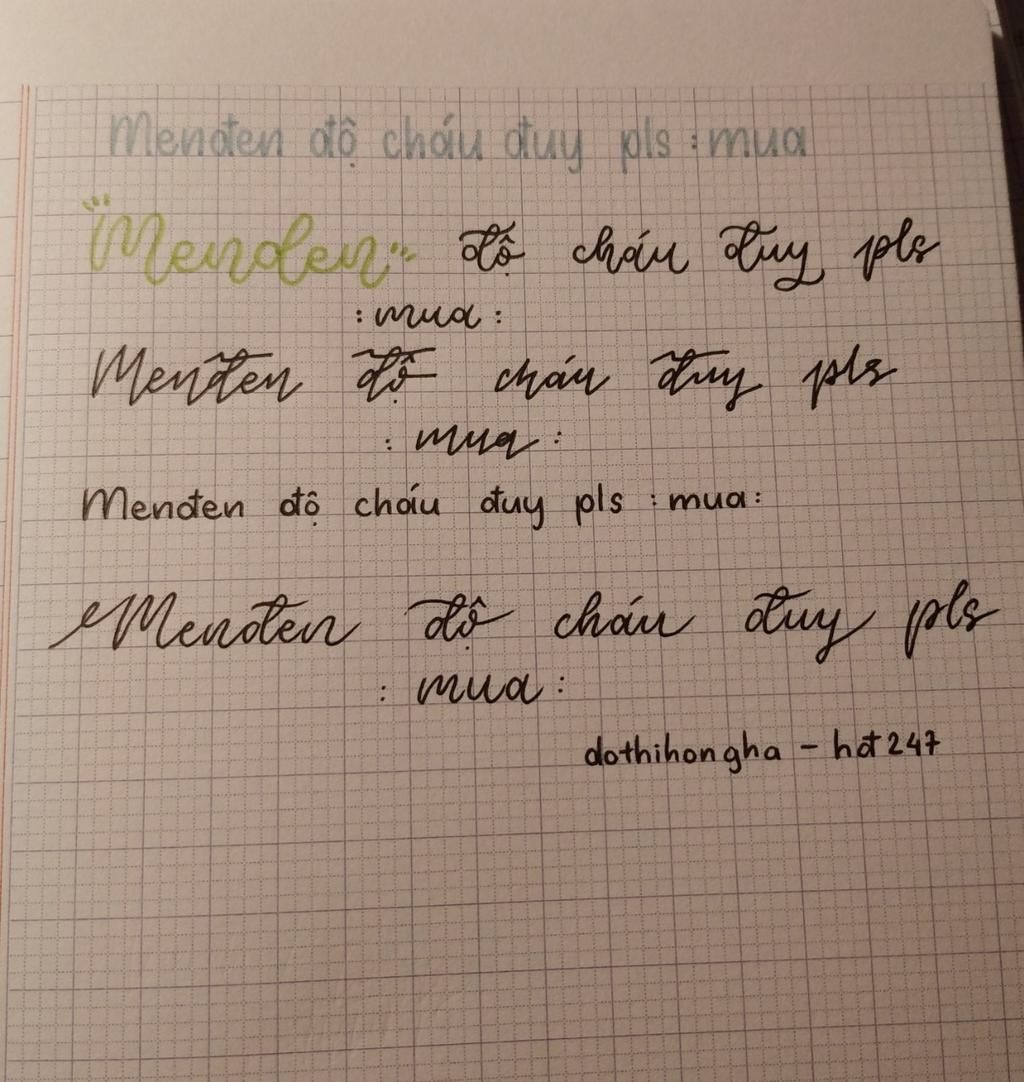 Menđen độ cháu đuy pls :mua
"Menden" độ cháu đuy pls
:mua:
Menđen độ cháu đuy pls
: mua :
Menđen độ cháu đuy pls :mua:
Menđen độ cháu đuy pls
: mua :
dothihongha - hđt247